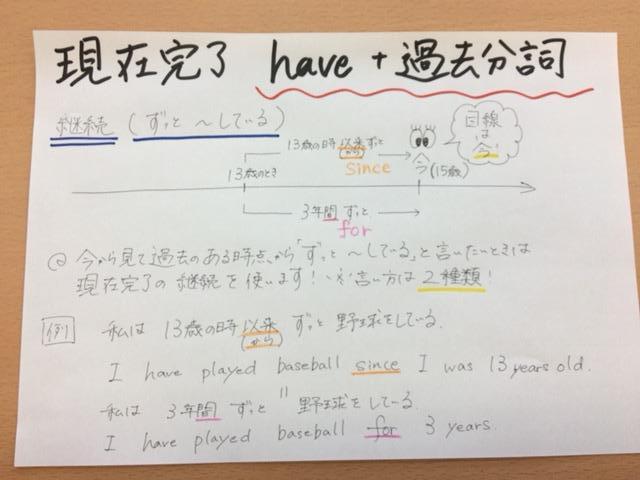 現在完了 have + 過去分詞
継続 (ずっと ～している)
目線
は
今!
13歳の時以来ずっと
(から)
since
13歳のとき
今(15歳)
3年間 ずっと
for
◎ 今から見て過去のある時点から「ずっと ～している」と言いたいときは
現在完了の 継続 を使います! 言い方は 2種類!
例 私は 13歳の時 以来 ずっと 野球をしている.
(から)
I have played baseball since I was 13 years old.
私は 3年間 ずっと 野球をしている.
I have played baseball for 3 years.